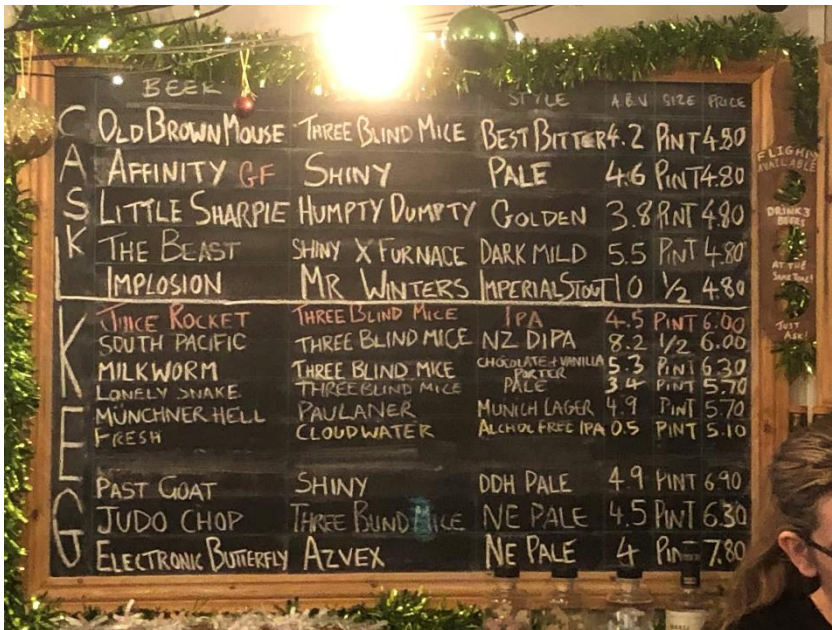 BEER STYLE A.B.V SIZE PRICE
CASK
OLD BROWN MOUSE THREE BLIND MICE BEST BITTER 4.2 PINT 4.80
AFFINITY GF SHINY PALE 4.6 PINT 4.80
LITTLE SHARPIE HUMPTY DUMPTY GOLDEN 3.8 PINT 4.80
THE BEAST SHINY X FURNACE DARK MILD 5.5 PINT 4.80
IMPLOSION MR WINTERS IMPERIAL STOUT 10 1/2 4.80
KEG
JUICE ROCKET THREE BLIND MICE IPA 4.5 PINT 6.00
SOUTH PACIFIC THREE BLIND MICE NZ DIPA 8.2 1/2 6.00
MILKWORM THREE BLIND MICE CHOCOLATE + VANILLA PORTER 5.3 PINT 6.30
LONELY SNAKE THREE BLIND MICE PALE 3.4 PINT 5.70
MÜNCHNER HELL PAULANER MUNICH LAGER 4.9 PINT 5.70
FRESH CLOUDWATER ALCHOL FREE IPA 0.5 PINT 5.10
PAST GOAT SHINY DDH PALE 4.9 PINT 6.90
JUDO CHOP THREE BLIND MICE NE PALE 4.5 PINT 6.30
ELECTRONIC BUTTERFLY AZVEX NE PALE 4 PINT 7.80
FLIGHTS
AVAILABLE
DRINK 3
BEERS
AT THE
SAME TIME!
JUST
ASK!